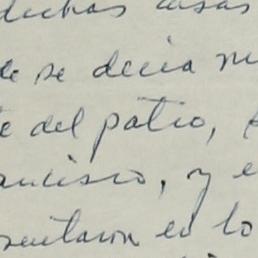 dichas casas
de se decía
del patio,
ancisco, y e
sentaron en lo